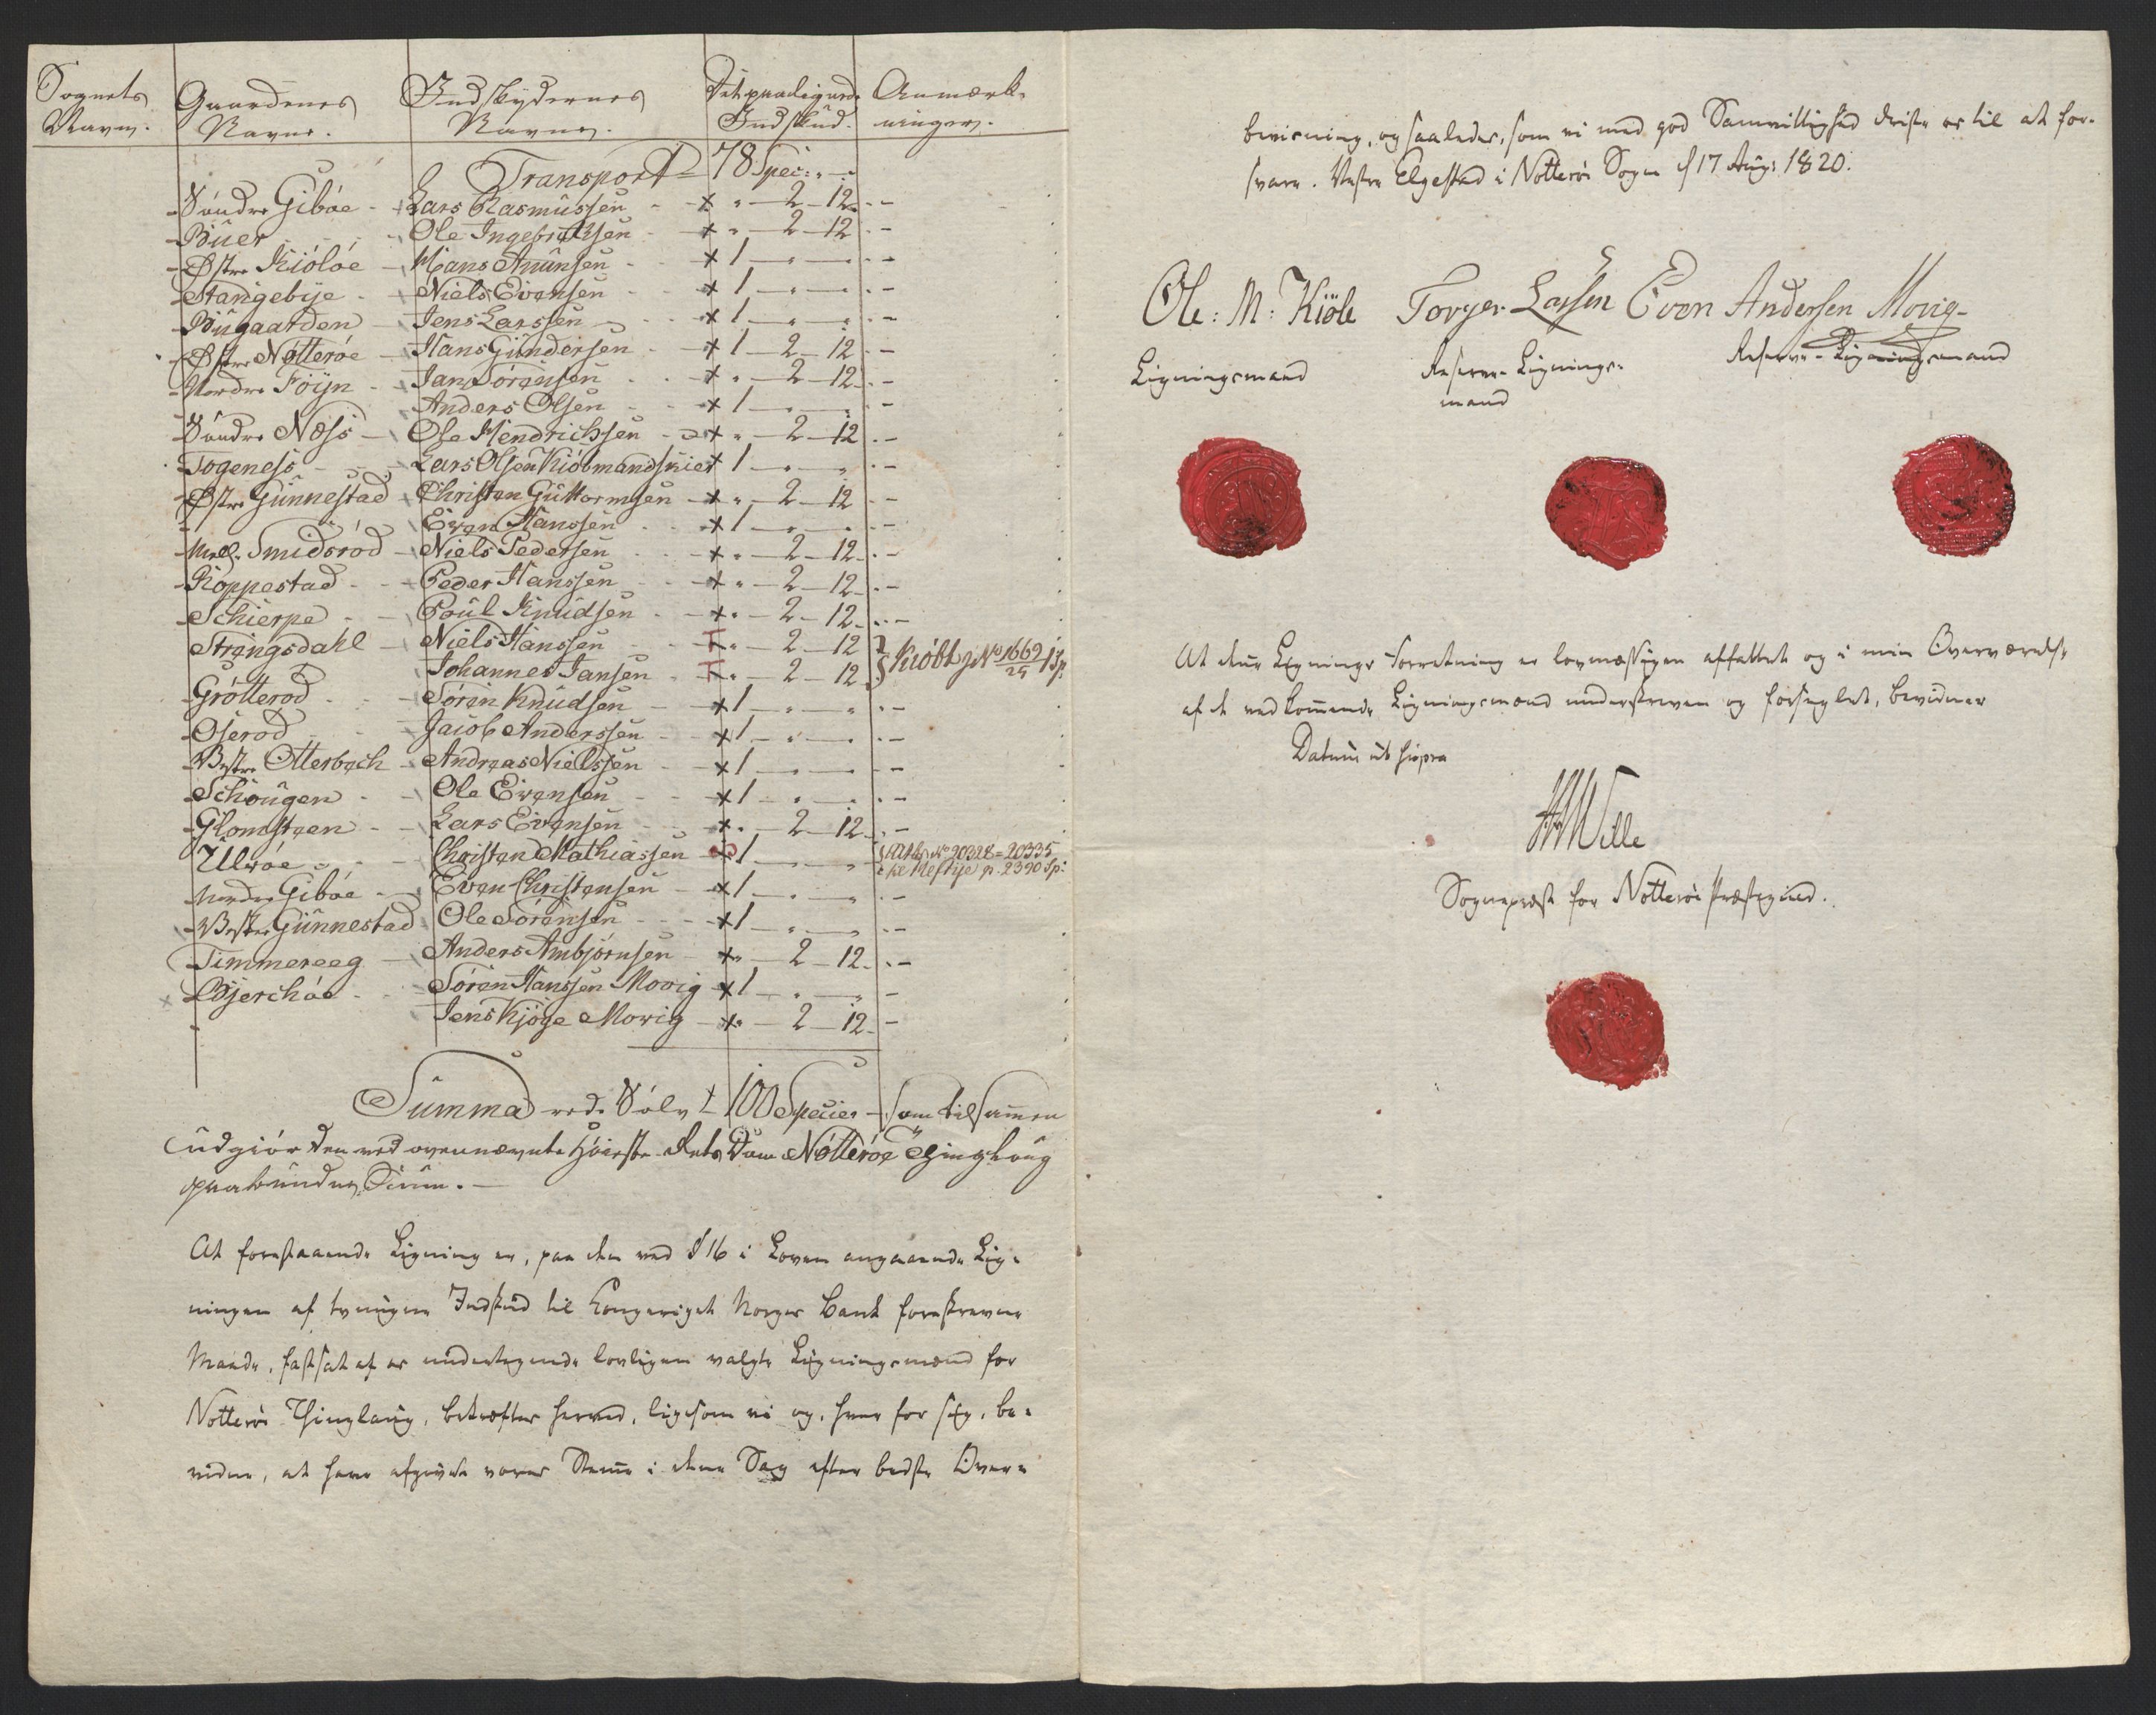 Sognets Navn. Gaardenes Navne. Indskydernes Navne. Det paalignede Indskud. Anmærkninger.
Transport 78 Spec: " —
Søndre Gibøe - Lars Rasmussen - x " — 2 — 12 -
Buer - Ole Ingebretsen - x " — 2 — 12 -
Østre Kiøløe - Hans Amunsen - x 1 — " — " -
Stangebye - Niels Evensen - x 1 — " — " -
Bugaarden - Jens Larssen - x 1 — " — " -
Østre Nøtterøe - Hans Gundersen - x 1 — 2 — 12 -
Nordre Føyn - Jan Sørensen - x " — 2 — 12 -
Anders Olsen - x 1 — " — " -
Søndre Næss - Ole Hendrichsen - x " — 2 — 12 -
Togeness - Lars Olsen Kiøbmandskier x 1 — " — " -
Østre Gunnestad - Christen Guttormsen - x " — 2 — 12 -
" Even Hanssen - x 1 — " — " -
Mell. Smidsrød - Niels Pedersen - x " — 2 — 12 -
Koppestad - Peder Hanssen - x " — 2 — 12 -
Schierpe - Poul Knudsen - x " — 2 — 12 -
Strengsdahl - Niels Hanssen - " — 2 — 12
Johannes Jansen - " — 2 — 12 } Kiøbt No 1669/25 1 Sp.
Grøtterød - Søren Knudsen - x 1 — " — " -
Oserød - Jacob Anderssen - x 1 — " — " -
Vestre Otterbech - Andreas Nielssen - x 1 — " — " -
Schougen - Ole Evensen - x 1 — " — " -
Glomsteen - Lars Evensen - x " — 2 — 12 -
Ulvøe - Christen Mathiassen - x 1 — " — " No 20328 = 20335
Heftye p. 2390 Sp:
Nordre Gibøe - Even Christensen - x 1 — " — " -
Vestre Gunnestad Ole Sørensen - x 1 — " — " -
Timmereeg - Anders Ambjørnsen - x " — 2 — 12 -
Bjerchøe - Søren Hanssen Movig - x 1 — " — " -
" Jens Kjøge Movig - x " — 2 — 12 -
Summa rede Sølv 100 Specier - som tilsammen
udgiør den ved ovennævnte Høieste Rets Dom Nøtterøe Thinglaug
paabundne Sum. -
At forestaaende Ligning er, paa den ved § 16 i Loven angaaende Lig-
ningen af tvungne Indskud til Kongeriget Norges Bank foreskrevne
Maade, fastsat af os undertegnede lovligen valgte Ligningsmænd for
Nøtterøe Thinglaug, bekræftes herved, ligesom vi og, hver for sig, be-
vidne, at have afgivet vores Stemme i denne Sag efter bedste Over-
beviisning, og saaledes, som vi med god Samvittighed driste os til at for-
svare. Vestre Elgestad i Nøtterøe Sogn d 17 Aug: 1820.
Ole: M: Kiöle Torger Larsen Even Andersen Movig -
Ligningsmand Reserve-Lignings-mand Reserve-Ligningsmand
At denne Lignings Forretning er lovmæssigen affattet og i min Overværelse
af de vedkommende Ligningsmænd underskreven og forseglet, bevidner
Datum ut supra
Wille
Sognepræst for Nøtterøe Præstegield.